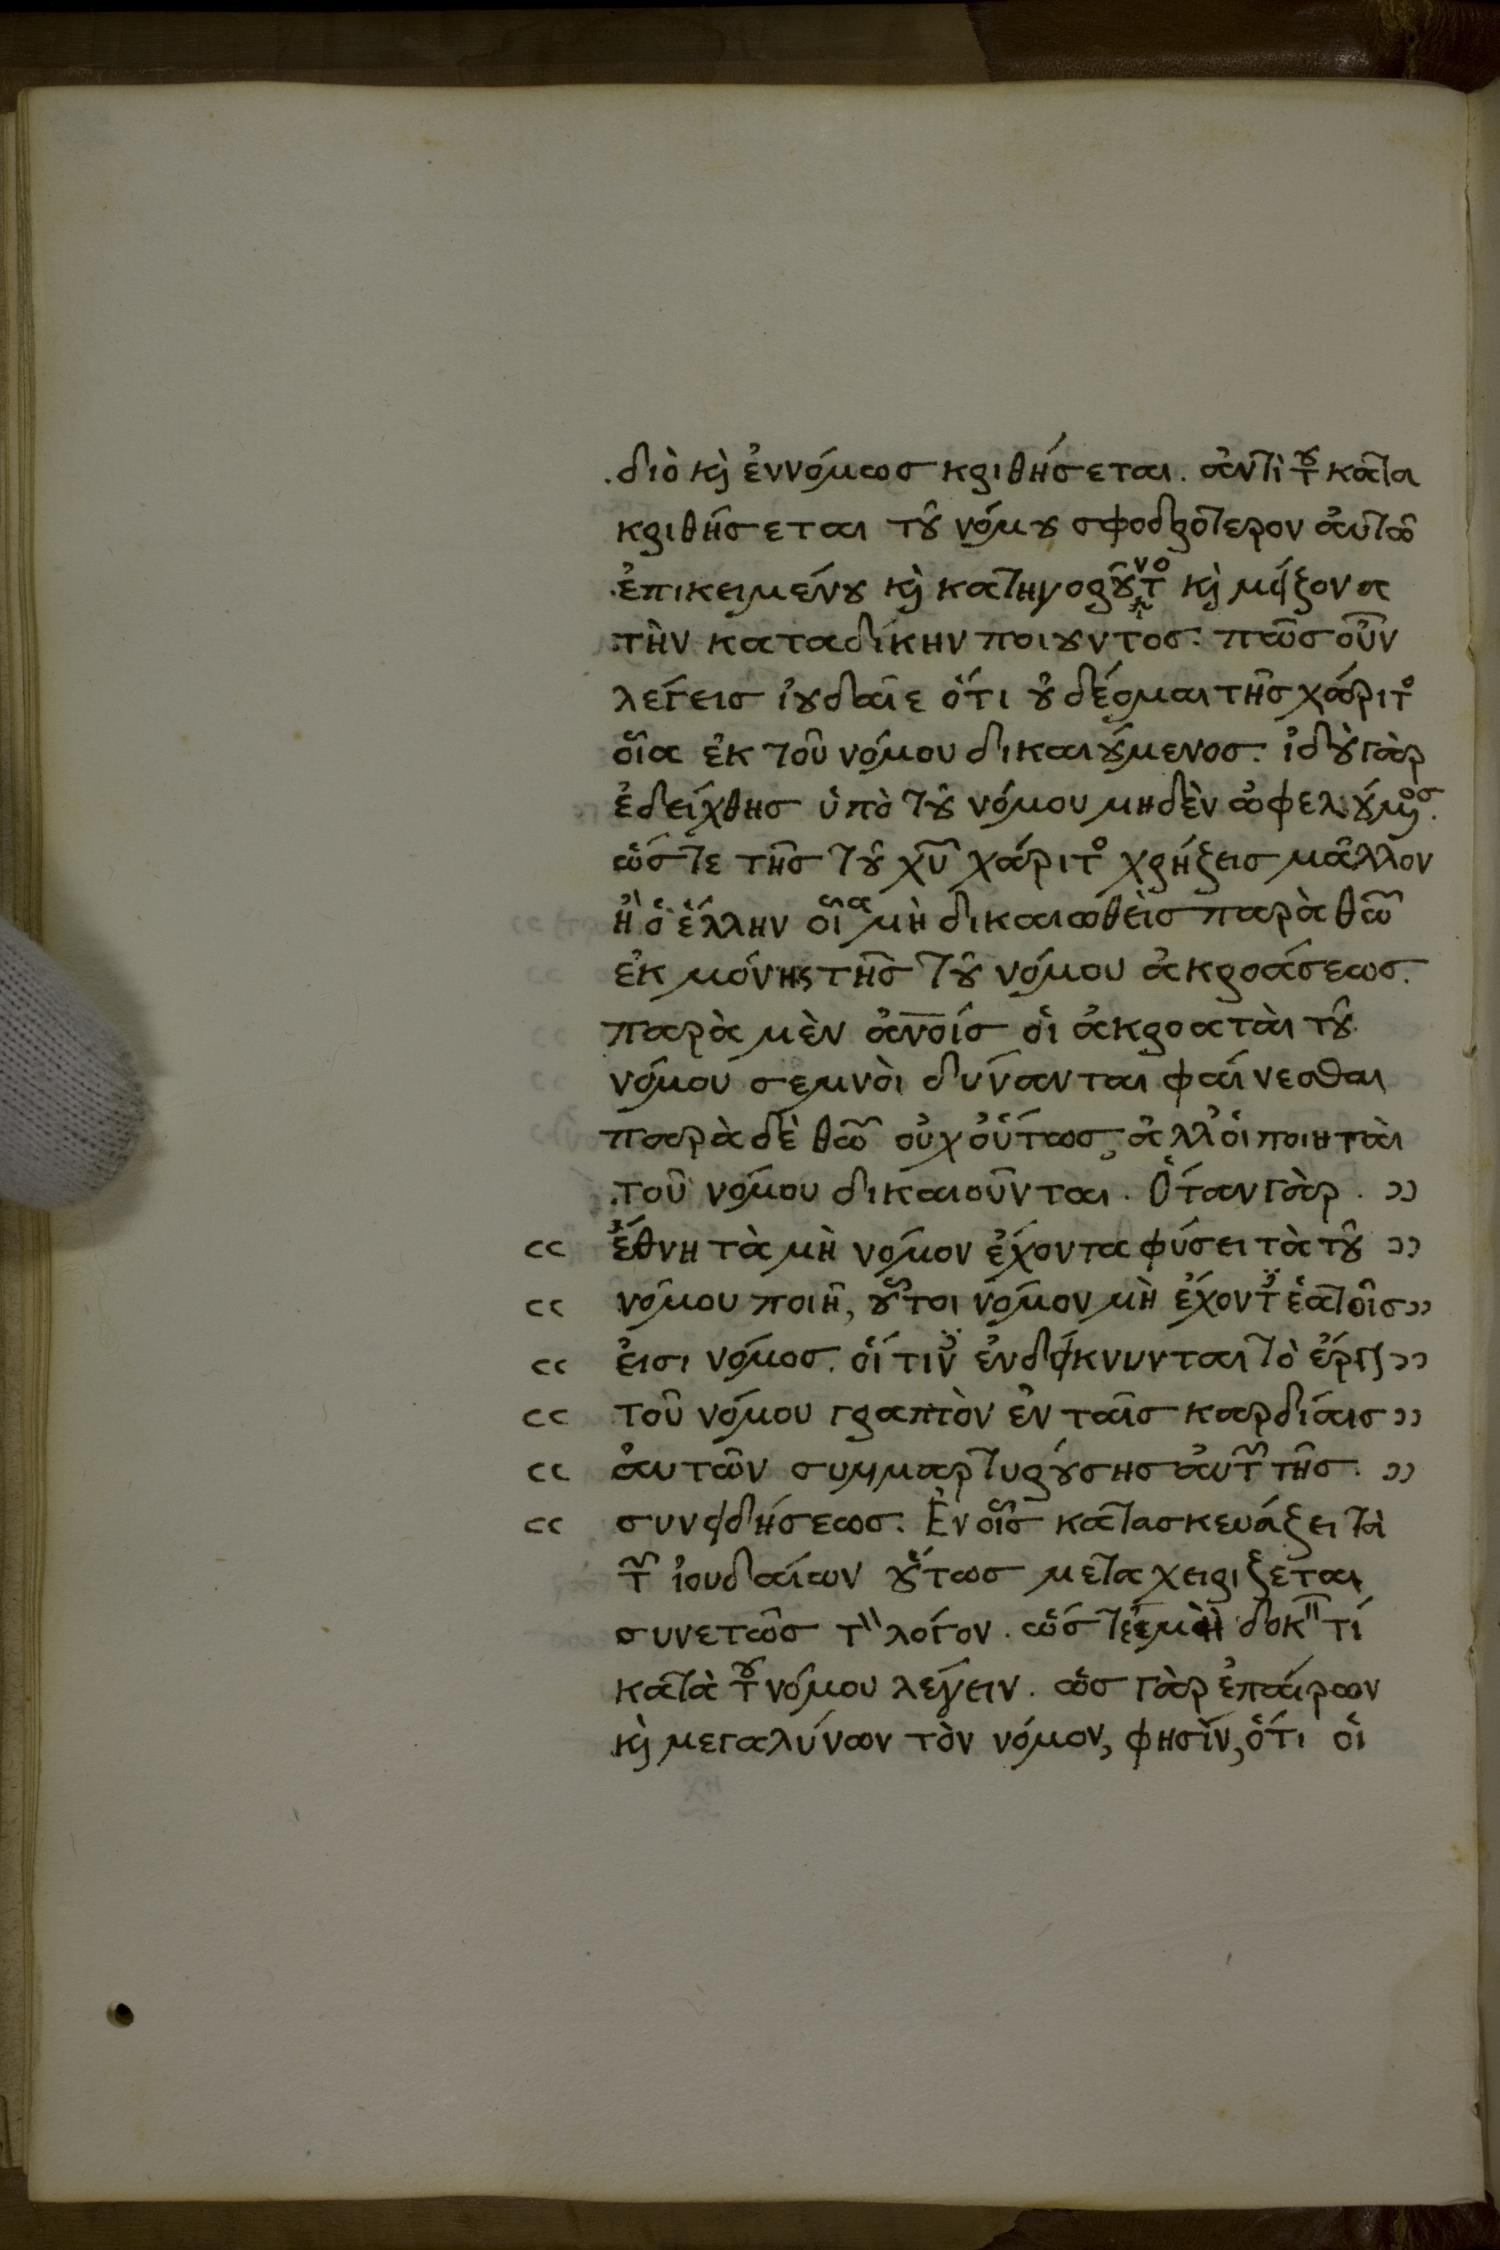 διὸ κὶ ἐννόμωσ κριθήσεται. ἀντὶ τ̅ȣ κατα
κριθήσεται τȣ͂ νόμȣ σφοδρότερον ἀυτῶ
ἐπικειμένȣ κὶ κατηγορȣ͂ντο κὶ μείζονα
τὴν καταδίκην ποιȣντοσ. πῶσ οὖν
λέγεισ ἰȣδαῖε ὅτι ȣ̓ δέομαι τῆσ χάριτο
οἷα ἐκ τοῦ νόμου δικαιȣ́μενοσ. ἰδȣ̀ γὰρ
ἐδείχθησ ὑπὸ τȣ͂ νόμου μηδὲν ὠφελȣ́μοσ.
ὥστε τῆσ τȣ͂ χ̅υ̅ χάριτο χρήζεισ μᾶλλον
ἢ ὁ ἕλλην οἷα μὴ δικαιωθὲισ παρὰ θ̅ω̅
ἐκ μόνης τῆσ τȣ͂ νόμου ἀκροάσεωσ.
παρὰ μὲν ἀνοίσ ὁι ἀκροατὰι τȣ͂
νόμου σεμνὸι δύνανται φάινεσθαι
παρὰ δὲ θ̅ω̅ οὐχ ὀύτωσ, ἀλλ ὁι ποιητὰι
τοῦ νόμου δικαιοῦνται. Ὅταν γὰρ. ))
cc ἔθνη τὰ μὴ νόμον ἔχοντα φύσει τὰ τȣ͂ ))
cc νόμου ποιῆ, ȣ̓͂τοι νόμον μὴ ἔχοντ ἑατοῖσ ))
cc ἐισι νόμοσ. οἵτιν ἐνδείκνυνται τὸ ἔργ ))
cc τοῦ νόμου γραπτὸν ἐν ταῖσ καρδίαισ ))
cc ἀυτῶν συμμαρτυρȣ́σησ ἀυτ̅ τῆσ. ))
cc συνειδήσεωσ. Ἐν οἷσ κατασκευάζει τὰ
τ̅ ἰουδαίων ȣ̔́τωσ μεταχειρίζεται
συνετῶσ τ" λόγον. ὥστε μὴ δοκ" τί
κατὰ τ̅ȣ νόμου λέγειν. ὡσ γὰρ ἐπάιρων
κὶ μεγαλύνων τὸν νόμον, φησὶν, ὅτι ὁι